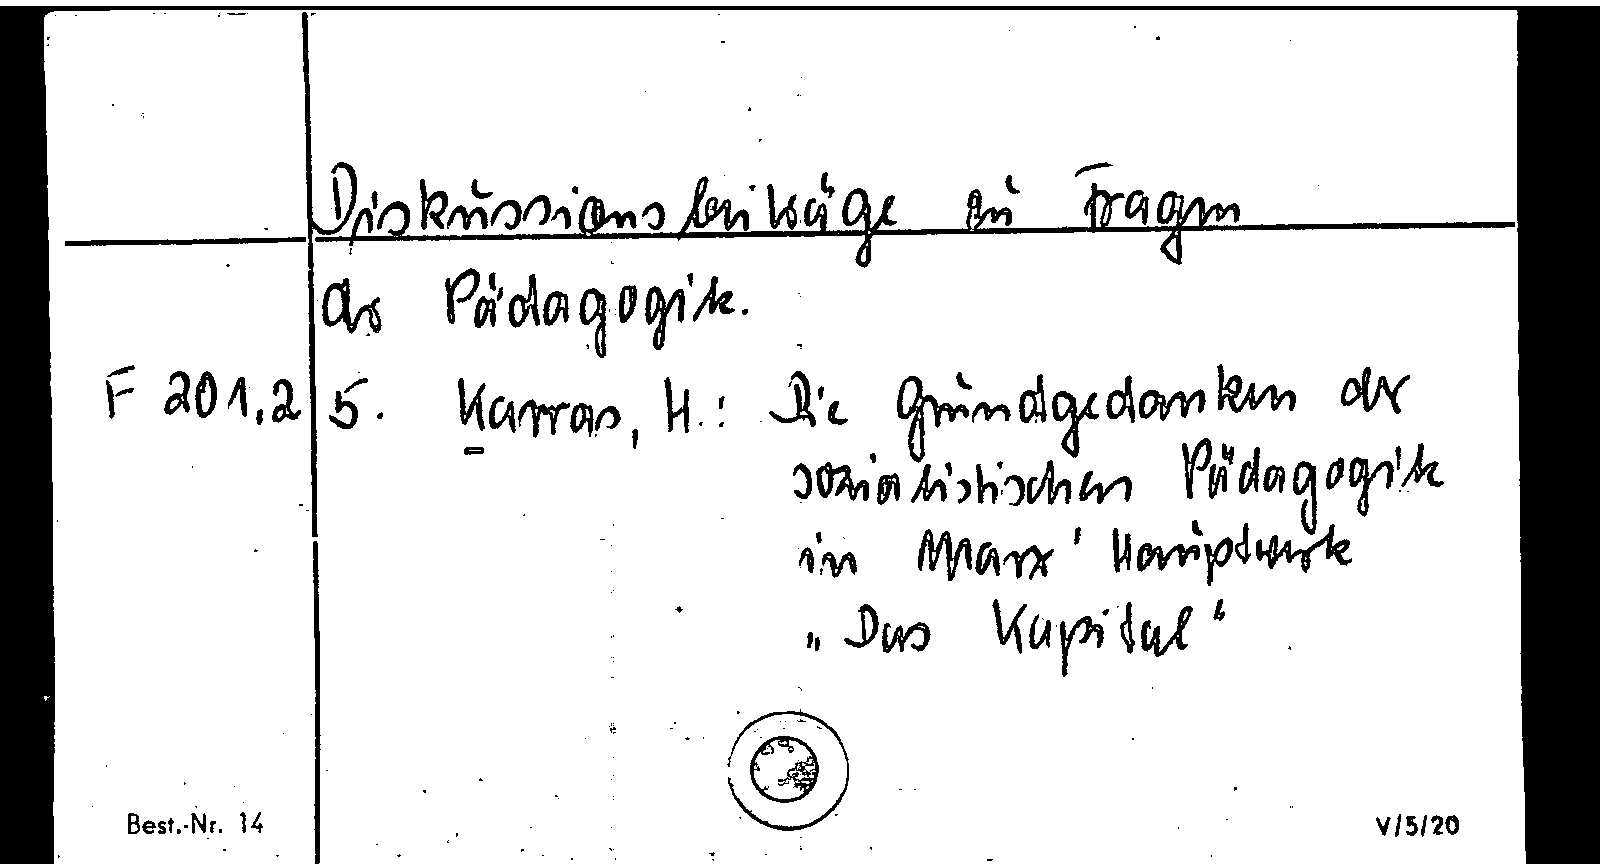 Diskussionsbeiträge zu Fragen
der Pädagogik.
F 201,2 5. Karras, H.: Die Grundgedanken der
sozialistischen Pädagogik
in Marx' Hauptwerk
„Das Kapital“
Best.-Nr. 14 V/5/20